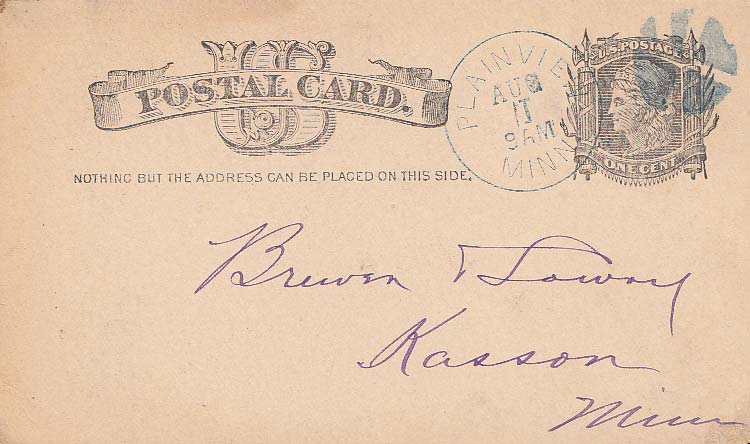 US
POSTAL CARD.
NOTHING BUT THE ADDRESS CAN BE PLACED ON THIS SIDE.
PLAINVIEW
AUG
11
9 AM
MINN
U.S. POSTAGE
ONE CENT
Brewer & Lowry
Kasson
Minn